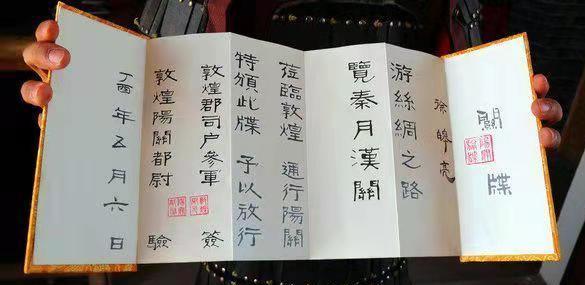 關牒
徐 亮
游絲綢之路
覽秦月漢關
蒞臨敦煌 通行陽關
特頒此牒 予以放行
敦煌郡司户參軍 簽
敦煌陽關都尉 驗
丁酉年五月六日